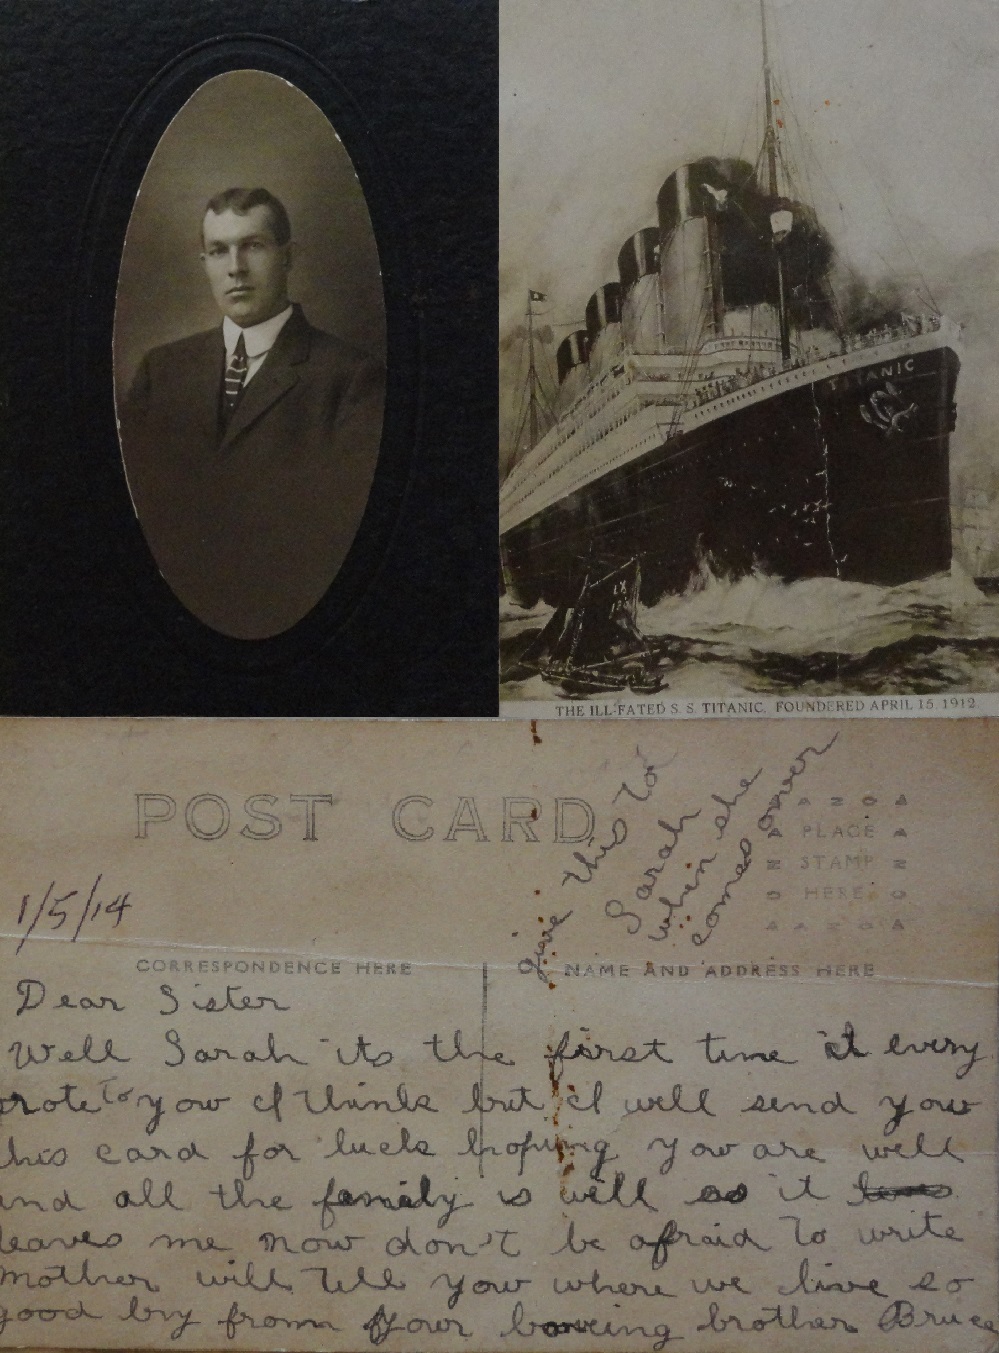 TITANIC
18
THE ILL-FATED S. S. TITANIC. FOUNDERED APRIL 15, 1912.
POST CARD
give this to
Sarah
when she
comes over
AZOA
PLACE
STAMP
HERE
AZOA
1/5/14
CORRESPONDENCE HERE
NAME AND ADDRESS HERE
Dear Sister
Well Sarah its the first time I every
rote to you I think but I will send you
his card for luck hoping you are well
and all the family is well as it
leaves me now don't be afraid to write
Mother will tell you where we live so
good by from your loveing brother Bruce